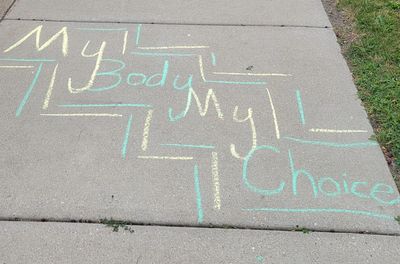 My
Body
My
Choice